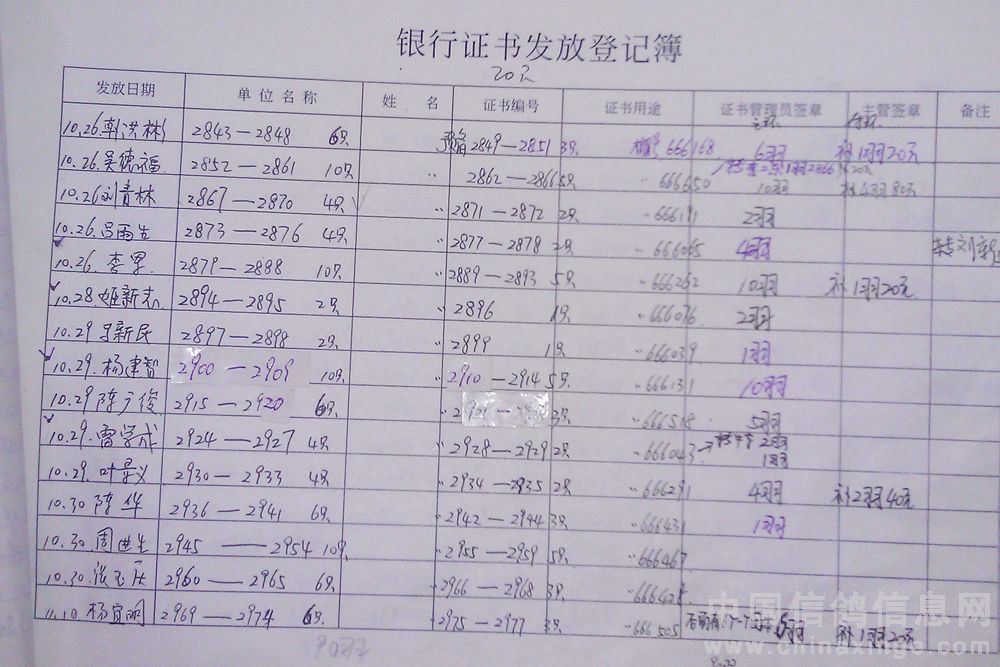 银行证书发放登记簿
20元
发放日期 单位名称 姓名 证书编号 证书用途 证书管理员签章 主管签章 备注
10.26 郭洪林 2843—2848 6只 预留 2849—2851 3只 666168 6羽 补1羽20元
10.26 吴德福 2852—2861 10只 〃2862—2866 5只 〃666650 10羽 补4羽80元
10.26 刘青林 2867—2870 4只 〃2871—2872 2只 〃666191 2羽
10.26 吕雨生 2873—2876 4只 〃2877—2878 2只 〃666065 4羽
10.26. 李军 2879—2888 10只 〃2889—2893 5只 〃666262 10羽 补1羽20元
10.28. 姬新志 2894—2895 2只 〃2896 1只 〃666076 2羽
10.29 马新民 2897—2898 2只 〃2899 1只 〃666039 1羽
10.29. 杨建智 2900—2909 10只 〃2910—2914 5只 〃666131 10羽
10.29 陈广俊 2915—2920 6只 3只 〃666518 5羽
10.29. 雷学成 2924—2927 4只 〃2928—2929 2只 〃666043 2羽
1羽
10.29. 叶景义 2930—2933 4只 〃2934—2935 2只 〃666291 4羽 补2羽40元
10.30 陈华 2936—2941 6只 〃2942—2944 3只 〃666431 1羽
10.30. 周进生 2945—2954 10只 〃2955—2959 5只 〃666467
10.30. 张玉庆 2960—2965 6只 〃2966—2968 3只 〃666428
11.10. 杨宜明 2969—2974 6只 〃2975—2977 3只 〃666505 6羽 补1羽20元
中国信鸽信息网
www.chinaxinge.com